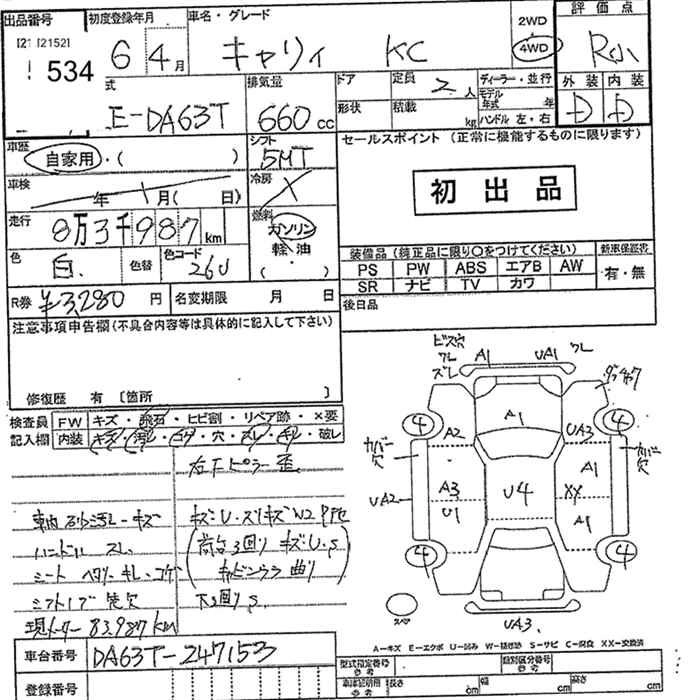 出品番号 初度登録年月 車名・グレード 2WD 評価点
[21 [2152] 534 6 4月 キャリィ KC 4WD R小
式 排気量 ドア 定員 2人 ディーラー・並行 外装 内装
E-DA63T 660cc 形状 積載 kg モデル年式 年 D D
ハンドル 左・右
車歴 自家用・( ) シフト 5MT セールスポイント (正常に機能するものに限ります)
車検 年 月( 日) 冷房 初出品
走行 8万3千987km 燃料 ガソリン
軽・油
( )
色 白 色替 色コード 26U 装備品 (純正品に限り○をつけてください) 新車保証書
PS PW ABS エアB AW 有・無
SR ナビ TV カワ
R券 ¥3,280円 名変期限 月 日 後日品
注意事項申告欄 (不具合内容等は具体的に記入して下さい)
修復歴 有 〔箇所 〕
検査員 FW キズ・飛石・ヒビ割・リペア跡・×要
記入欄 内装 キズ・汚レ・コゲ・穴・スレ・キレ・破レ
右Fピラー歪
車内 汚レ・キズ キズU・スリキズ W2
ハンドル スレ 荷台3回り キズU.S
シート ヘタリ・キレ・コゲ キャビンウラ曲り
シフトノブ先欠 下3回りS
現メーター 83.987km
ビス穴 ワレ ズレ A1 UA1 ワレ
4 4 A1 A2 UA3
カバー欠 カバー欠
UA2 A3 U1 U4 A1 XX A1
4 4
スペア UA3
A−キズ E−エクボ U−凹み W−補修跡 S−サビ C−腐食 XX−交換済
車台番号 DA63T-247153 型式指定番号 参考 類別区分番号 参考
登録番号 車庫証明用 参考 長さ cm 幅 cm 高さ cm